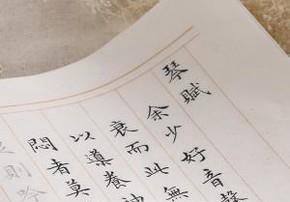 琴賦
余少好音聲
衰而此無
以導養神
悶者莫
則吟